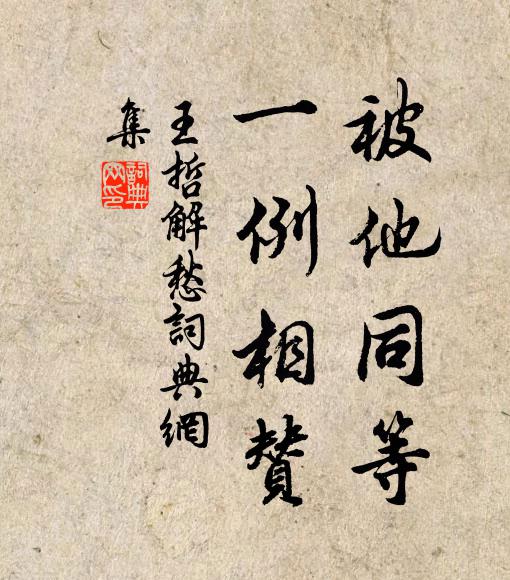 被他同等
一例相贊
王哲解愁詞典網
集
詞典網印